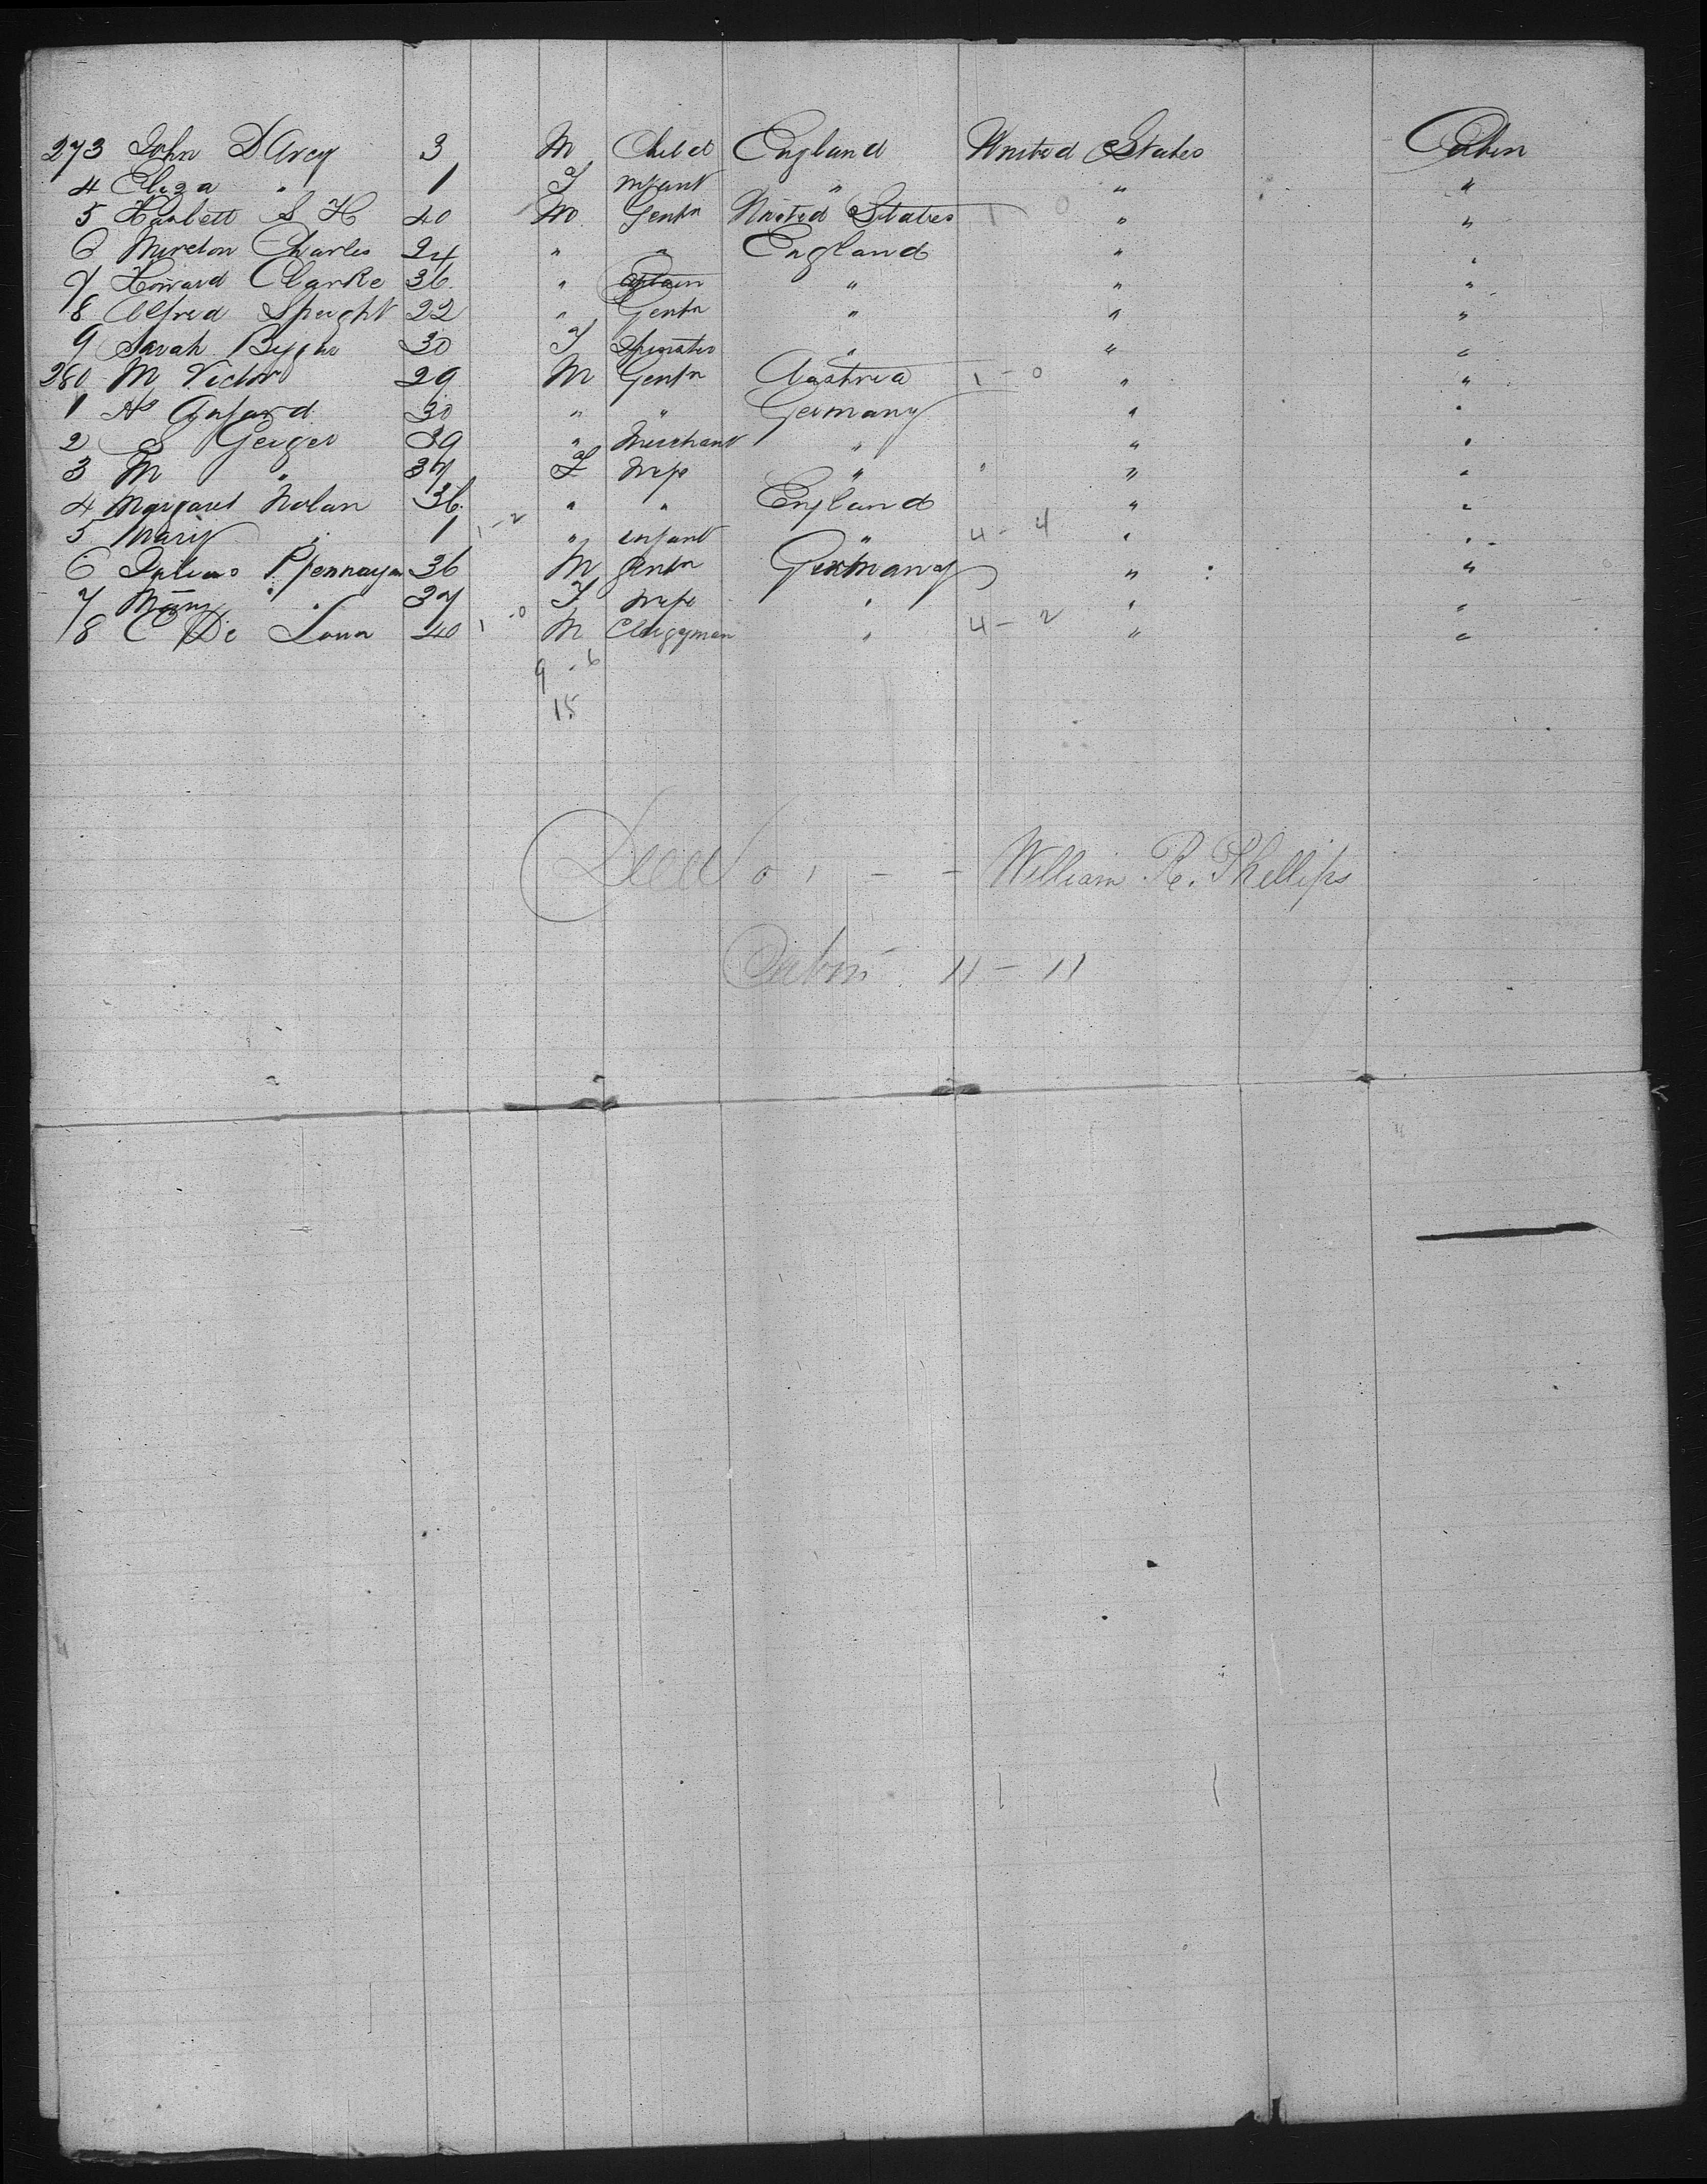 273 John D'Arcy 3 M Child England United States Cabin
4 Eliza " 1 F Infant " " "
5 Harbett S H 40 M Gentn United States 1 0 " "
6 Mireton Charles 24 " " England " "
7 Howard Clarke 36 " Captain " " "
8 Alfred Speight 22 " Gentn " " "
9 Sarah 30 F Spinster " " "
280 M Victor 29 M Gentn Austria 1 - 0 " "
1 30 " " Germany " "
2 S Geiger 39 " Merchant " " "
3 M " 37 F Wife " " "
4 Margaret Nolan 36 " " England " "
5 Mary " 1 1 - 2 " Infant " 4 - 4 " "
6 Julius 36 M Gentn Germany " "
7 Mary " 37 F Wife " " "
8 C De 40 1 - 0 M Clergyman " 4 - 2 " "
9 - 6
15
- - William R. Phillips
Cabin 11 - 11